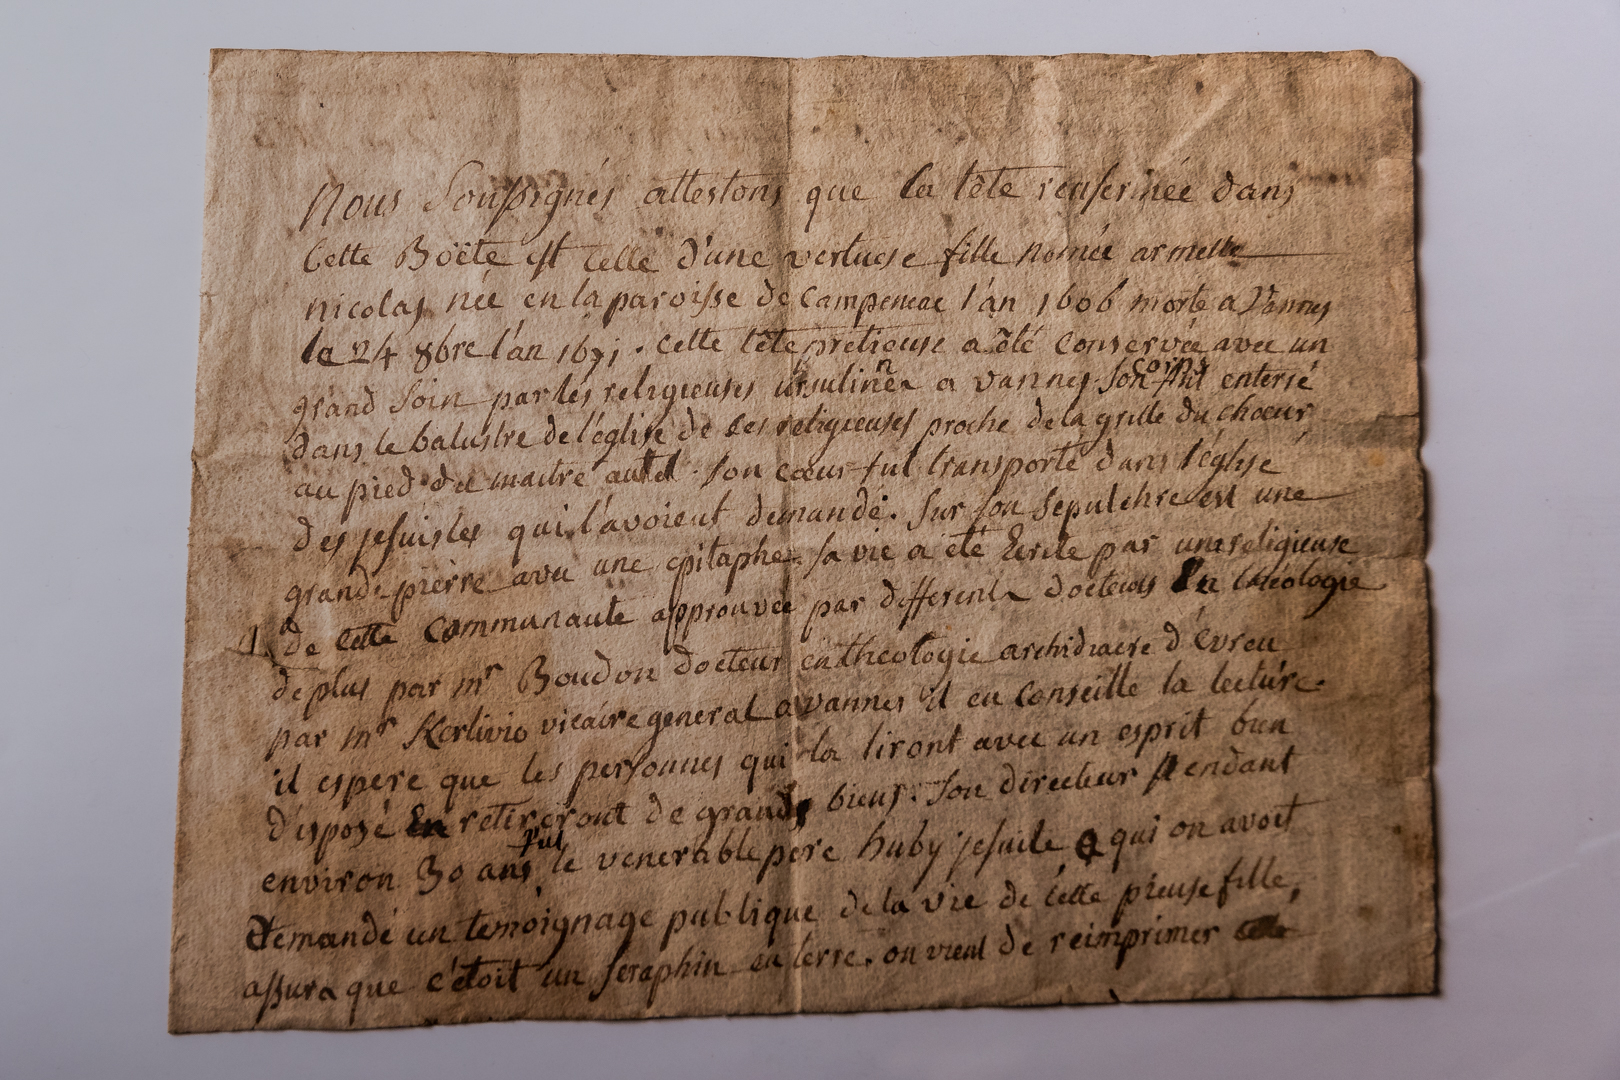 Nous Soussignés attestons que la tête renfermée dans
Cette Boëte est celle d'une vertuese fille nomée armelle
nicolas née en la paroisse de Campeneac l'an 1606 morte a Vannes
le 24 8bre l'an 1671. Cette tête pretieuse a été conservée avec un
grand Soin par les religieuses ursulines a vannes. Son corps fut enterré
dans le balustre de l'église de ces religieuses proche de la grille du choeur
au pied du maitre autel. Son coeur fut transporté dans l'église
des jesuistes qui l'avoient demandé. Sur son sepulchre est une
grande pierre avec une epitaphe. Sa vie a été Ecrite par une religieuse
de cette Communauté approuvée par differents docteurs En théologie
de plus par mr Boudon docteur en theologie archidiacre d'Evreu
par mr Kerlivio vicaire general a vannes il en Conseille la lecture.
il espere que les personnes qui la liront avec un esprit bien
disposé En retireront de grands biens. Son directeur pendant
environ 30 ans fut le venerable pere huby jesuite a qui on avoit
demandé un temoignage publique de la vie de cette pieuse fille,
assura que c'étoit un seraphin en terre. on vient de reimprimer